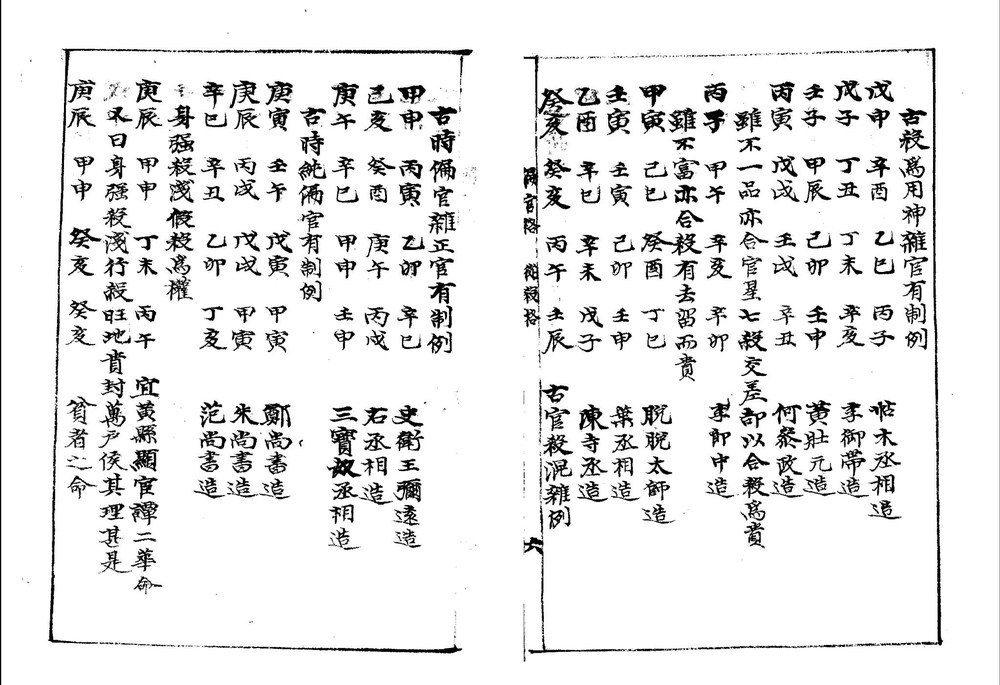 古殺為用神雜官有制例
戊申 辛酉 乙巳 丙子 帖木丞相造
戊子 丁丑 丁未 辛亥 李御帶造
壬子 甲辰 己卯 壬申 黃壯元造
丙寅 戊戌 壬戌 辛丑 何參政造
雖不一品亦合官星七殺交差却以合殺為貴
丙子 甲午 辛亥 辛卯 李郎中造
雖不富亦合殺有去留而貴
甲寅 己巳 癸酉 丁巳 脫脫太師造
壬寅 壬寅 己卯 壬申 葉丞相造
乙酉 辛巳 辛未 戊子 陳寺丞造
癸亥 癸亥 丙午 壬辰 古官殺混雜例
偏官格 從殺格 六
古時偏官雜正官有制例
甲申 丙寅 乙卯 辛巳 史衛王彌遠造
己亥 癸酉 庚午 丙戌 右丞相造
庚午 辛巳 甲申 壬申 三寶奴丞相造
古時純偏官有制例
庚寅 壬午 戊寅 甲寅 鄭尚書造
庚辰 丙戌 戊戌 甲寅 朱尚書造
辛巳 辛丑 乙卯 丁亥 范尚書造
身强殺淺假殺為權
庚辰 甲申 丁未 丙午 宜黃縣顯官譚二華命
不曰身强殺淺行殺旺地貴封萬戶侯其理甚是
庚辰 甲申 癸亥 癸亥 貧者之命